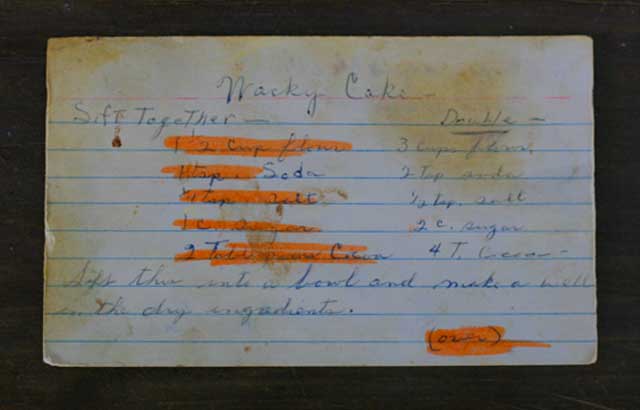 Wacky Cake
Sift Together — Double —
1 1/2 cup flour 3 cups flour
1 tsp. Soda 2 tsp soda
1/4 tsp. salt 1/2 tsp. salt
1 c. sugar 2 c. sugar
2 Cocoa 4 T. Cocoa —
Sift this into a bowl and make a well
in the dry ingredients.
(over)